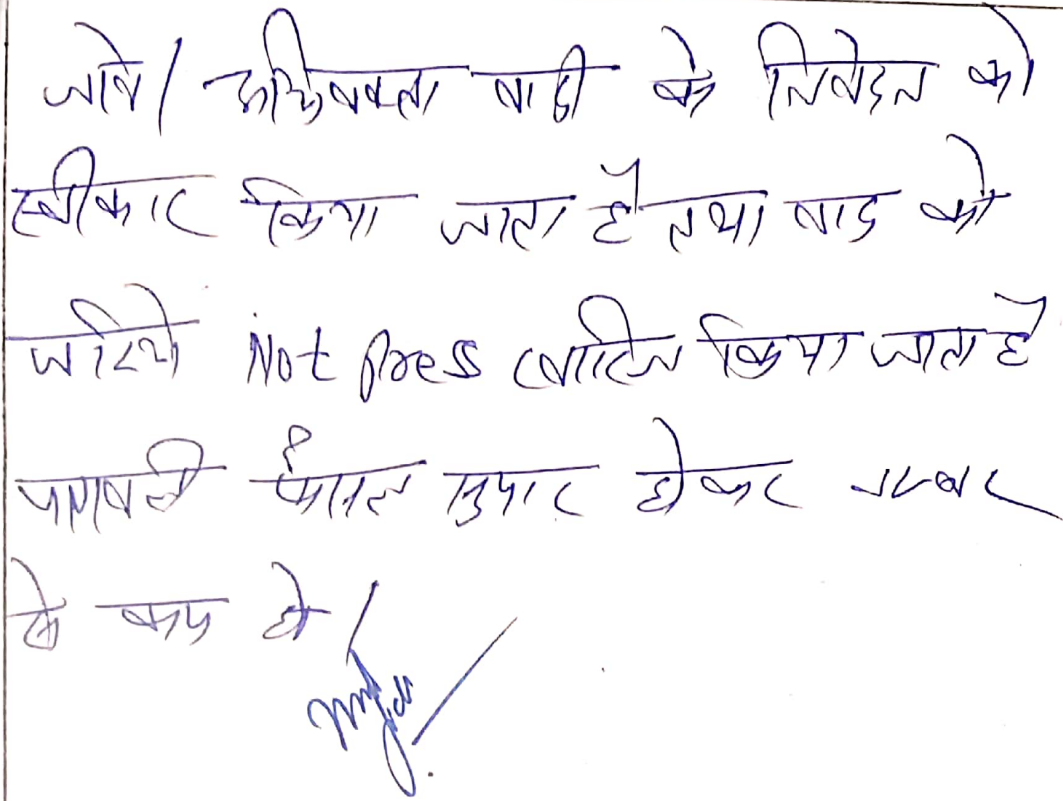 जावे। अधिवक्ता वादी के निवेदन को
स्वीकार किया जाता है तथा वाद को
जरिये Not Press खारिज किया जाता है
पत्रावली फैसल सुमार होकर नम्बर
से कम हो।